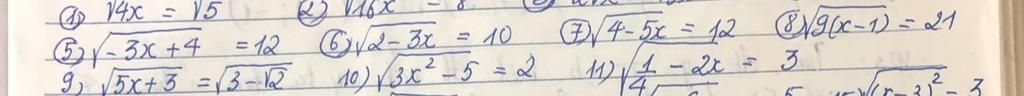 ① √4x = √5 ② √16x = 8
⑤ √-3x+4 = 12 ⑥ √2-3x = 10 ⑦ √4-5x = 12 ⑧ √9(x-1) = 21
9, √5x+3 = √3-√2 10) √3x²-5 = 2 11) √1/4 - 2x = 3
√(x-3)² - 3